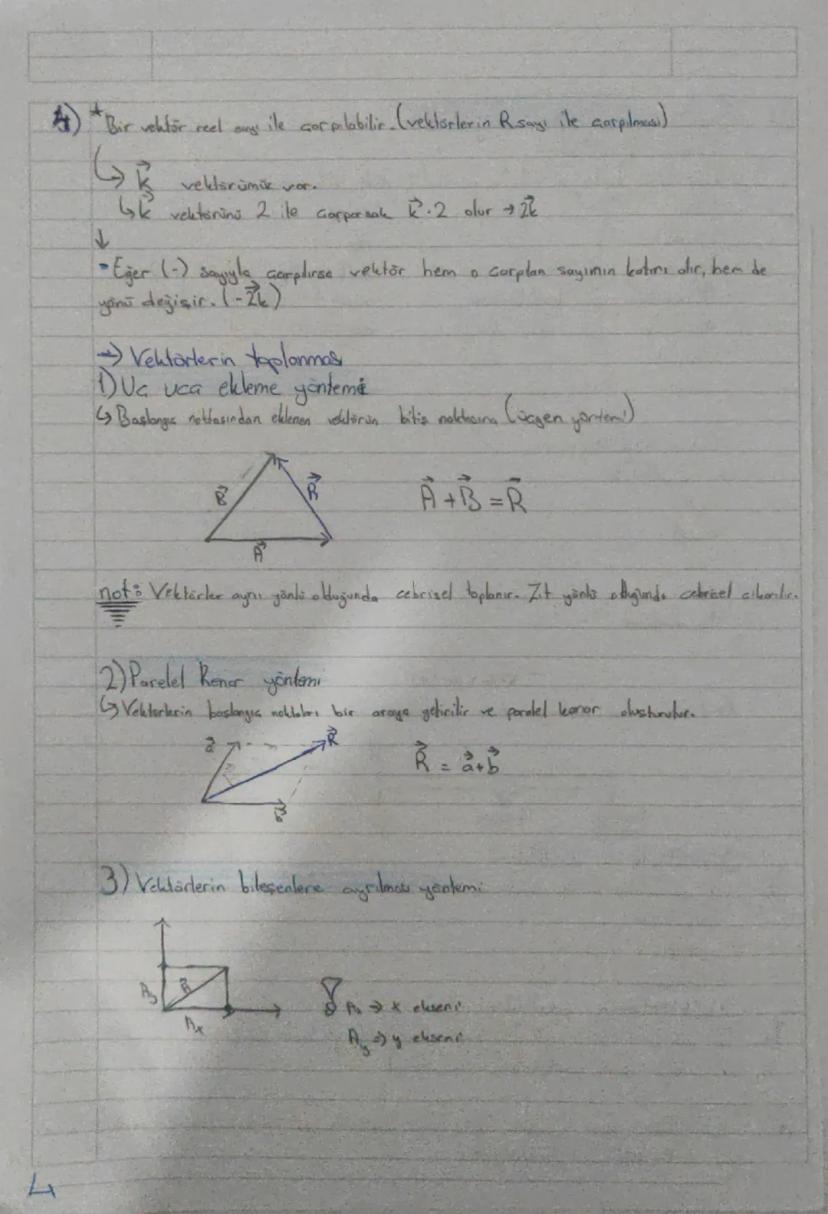 4) * Bir vektör reel sayı ile çarpılabilir. (vektörlerin R sayı ile çarpılması)
↳ k⃗ vektörümüz var.
↳ k⃗ vektörünü 2 ile çarparsak k⃗ . 2 olur → 2k⃗
↓
• Eğer (-) sayıyla çarpılırsa vektör hem o çarpılan sayının katını alır, hem de
yönü değişir. (-2k⃗)
→ Vektörlerin toplanması
1) Uc uca ekleme yöntemi
↳ Başlangıç noktasından eklenen vektörün bitiş noktasına (üçgen yöntemi)
B⃗ R⃗ A⃗
A⃗ + B⃗ = R⃗
not: Vektörler aynı yönlü olduğunda cebrisel toplanır. Zıt yönlü olduğunda cebrisel çıkarılır.
2) Parelel kenar yöntemi
↳ Vektörlerin başlangıç noktaları bir araya getirilir ve paralel kenar oluşturulur.
a⃗ R⃗ b⃗
R⃗ = a⃗ + b⃗
3) Vektörlerin bileşenlere ayrılması yöntemi
Ay A⃗ Ax
Ax → x ekseni
Ay → y ekseni
4